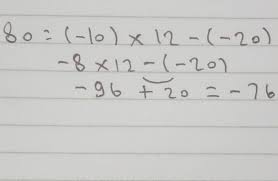 80 = (-10) × 12 - (-20)
-8 × 12 - (-20)
-96 + 20 = -76